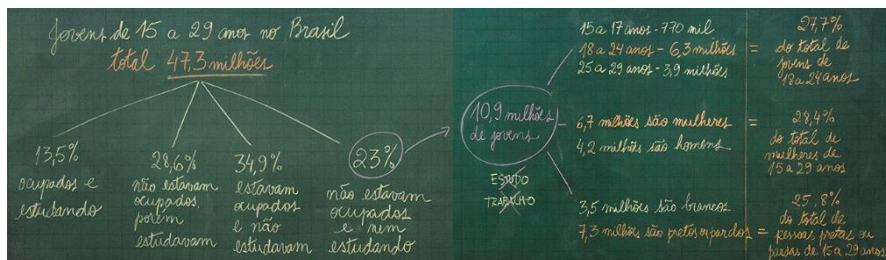 Jovens de 15 a 29 anos no Brasil
total 47,3 milhões
13,5%
ocupados e
estudando
28,6%
não estavam
ocupados,
porém
estudavam
34,9%
estavam
ocupados
e não
estudavam
23%
não estavam
ocupados
e nem
estudando
10,9 milhões
de jovens
ESTUDO
TRABALHO
15 a 17 anos - 770 mil
18 a 24 anos - 6,3 milhões =
25 a 29 anos - 3,9 milhões
27,7%
do total de
jovens de
18 a 24 anos
6,7 milhões são mulheres =
4,2 milhões são homens
28,4%
do total de
mulheres de
15 a 29 anos
3,5 milhões são brancos
7,3 milhões são pretos ou pardos =
25,8%
do total de
pessoas pretas ou
pardas de 15 a 29 anos